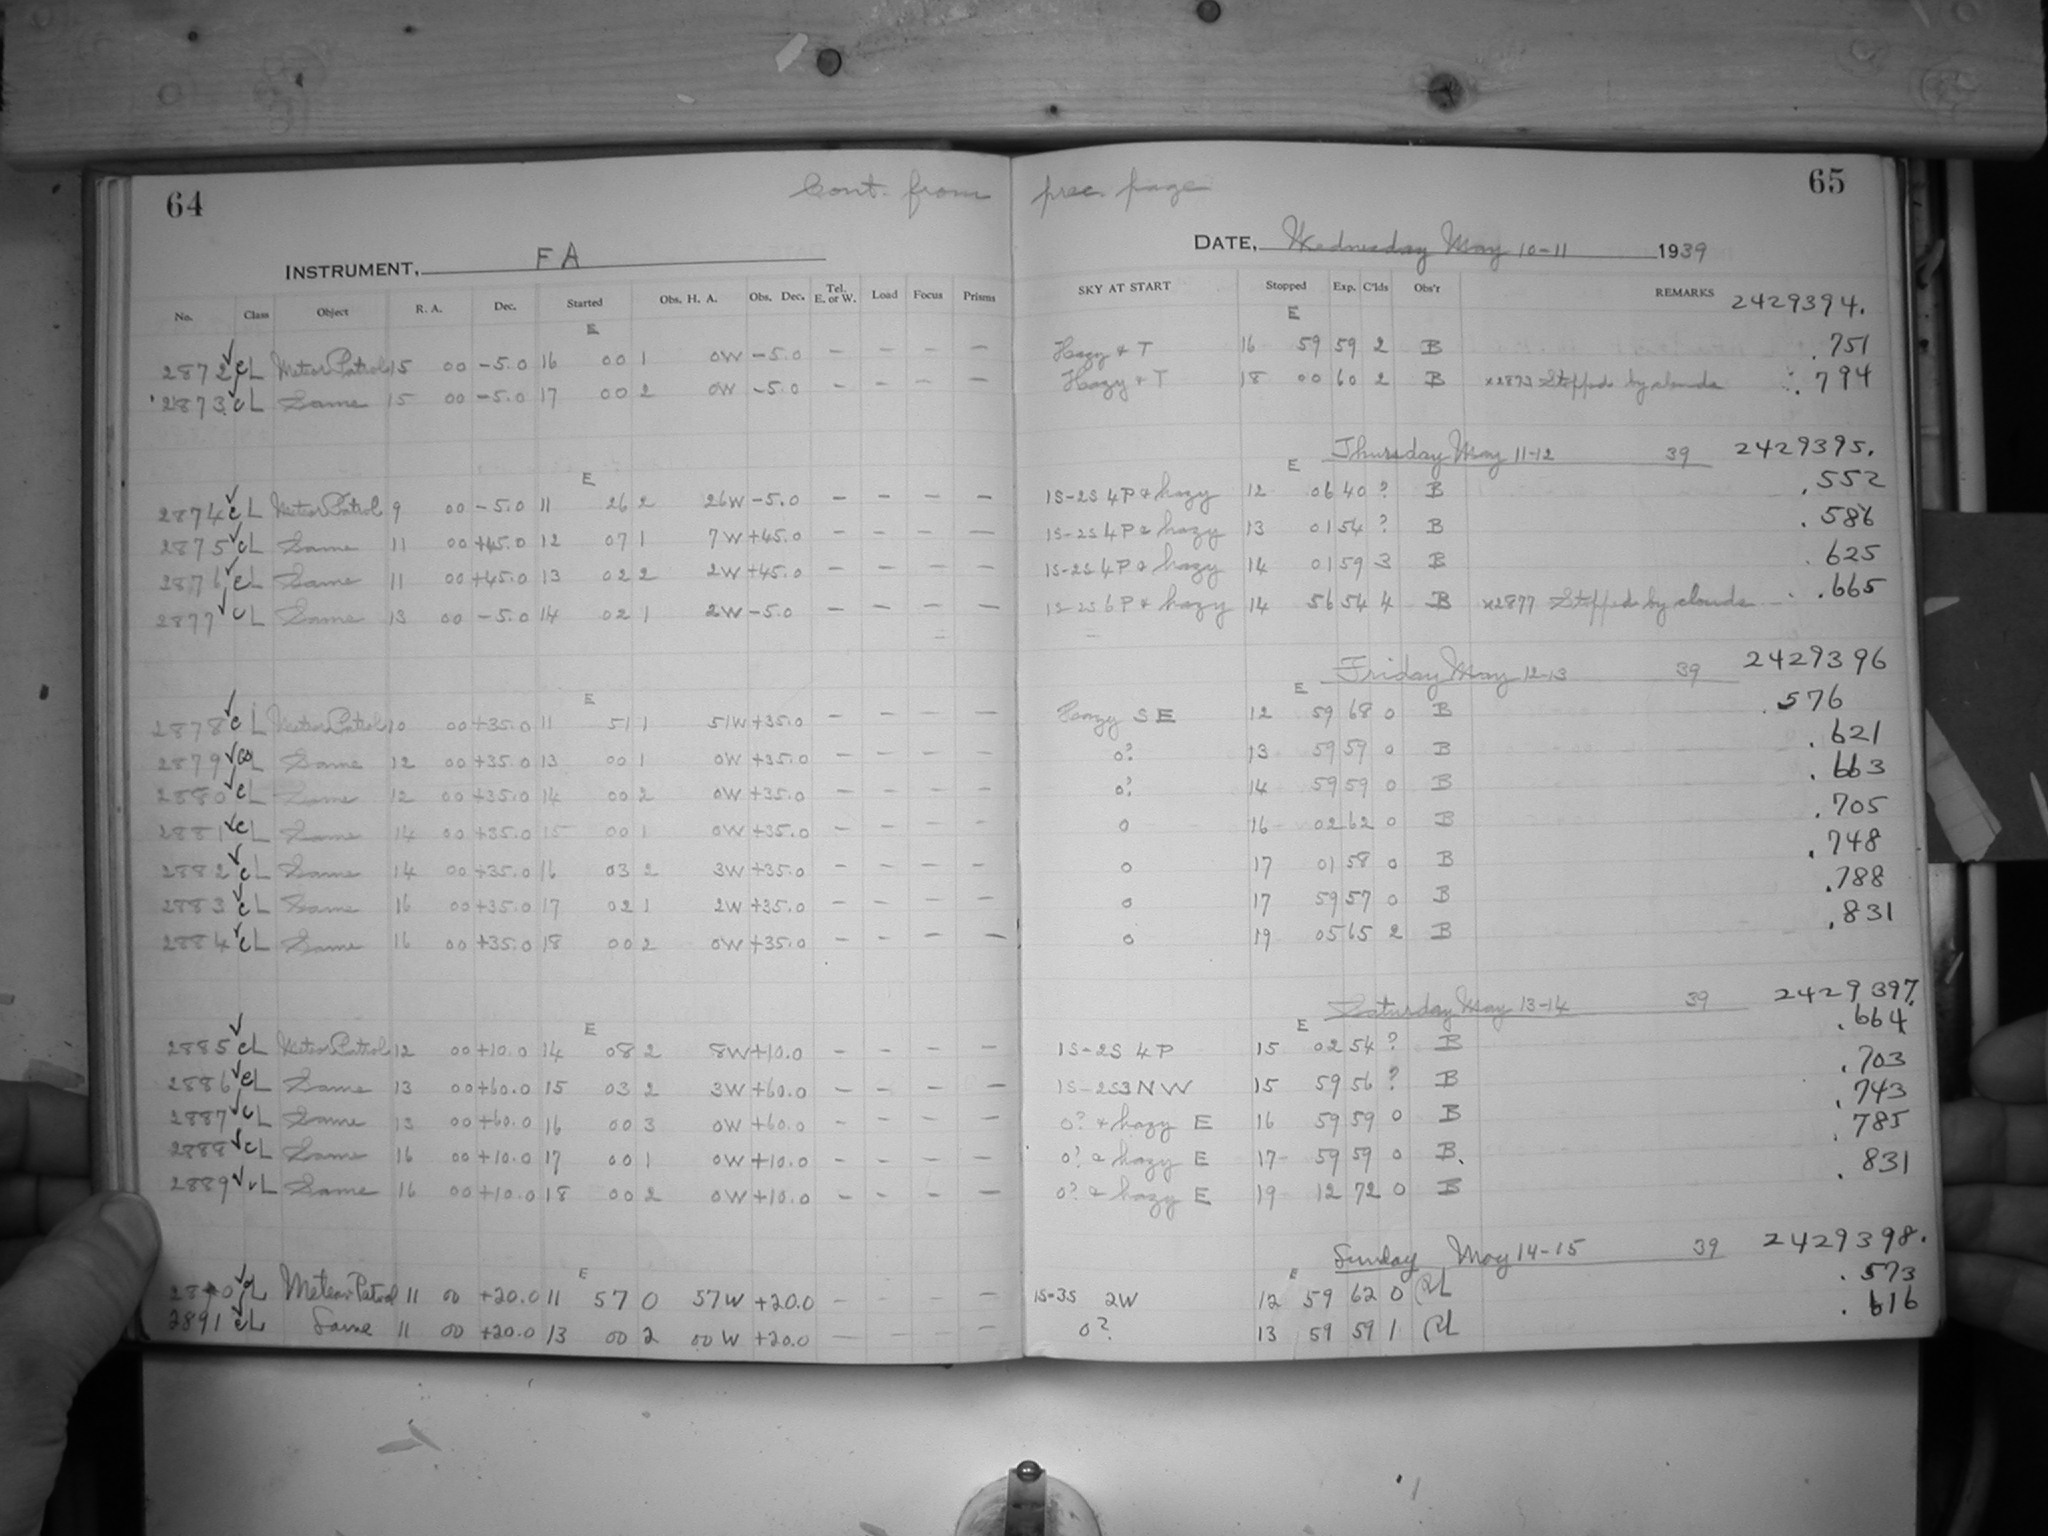 64 Cont. from prec. page 65
INSTRUMENT, F A DATE, Wednesday May 10-11 1939
No. Class Object R. A. Dec. Started Obs. H. A. Obs. Dec. Tel. E. or W. Load Focus Prisms SKY AT START Stopped Exp. C'lds Obs'r REMARKS 2429394.
E E
2872 ✓ c L Meteor Patrol 15 00 -5.0 16 00 1 0W -5.0 - - - - Hazy & T 16 59 59 2 B .751
2873 ✓ c L Same 15 00 -5.0 17 00 2 0W -5.0 - - - - Hazy & T 18 00 60 2 B x2873 Stopped by clouds .794
Thursday May 11-12 39 2429395.
E E
2874 ✓ c L Meteor Patrol 9 00 -5.0 11 26 2 26W -5.0 - - - - 1S-2S 4P & hazy 12 06 40 ? B .552
2875 ✓ c L Same 11 00 +45.0 12 07 1 7W +45.0 - - - - 1S-2S 4P & hazy 13 01 54 ? B .586
2876 ✓ c L Same 11 00 +45.0 13 02 2 2W +45.0 - - - - 1S-2S 4P & hazy 14 01 59 3 B .625
2877 ✓ c L Same 13 00 -5.0 14 02 1 2W -5.0 - - - - 1S-2S 6P & hazy 14 56 54 4 B x2877 Stopped by clouds .665
Friday May 12-13 39 2429396
E E
2878 ✓ c L Meteor Patrol 10 00 +35.0 11 51 1 51W +35.0 - - - - Hazy SE 12 59 68 0 B .576
2879 ✓ L Same 12 00 +35.0 13 00 1 0W +35.0 - - - - 0? 13 59 59 0 B .621
2880 ✓ c L Same 12 00 +35.0 14 00 2 0W +35.0 - - - - 0? 14 59 59 0 B .663
2881 ✓ c L Same 14 00 +35.0 15 00 1 0W +35.0 - - - - 0 16 02 62 0 B .705
2882 ✓ c L Same 14 00 +35.0 16 03 2 3W +35.0 - - - - 0 17 01 58 0 B .748
2883 ✓ c L Same 16 00 +35.0 17 02 1 2W +35.0 - - - - 0 17 59 57 0 B .788
2884 ✓ c L Same 16 00 +35.0 18 00 2 0W +35.0 - - - - 0 19 05 65 2 B .831
Saturday May 13-14 39 2429397.
E E
2885 ✓ c L Meteor Patrol 12 00 +10.0 14 08 2 8W +10.0 - - - - 1S-2S 4P 15 02 54 ? B .664
2886 ✓ c L Same 13 00 +60.0 15 03 2 3W +60.0 - - - - 1S-2S 3NW 15 59 56 ? B .703
2887 ✓ c L Same 13 00 +60.0 16 00 3 0W +60.0 - - - - 0? & hazy E 16 59 59 0 B .743
2888 ✓ c L Same 16 00 +10.0 17 00 1 0W +10.0 - - - - 0? & hazy E 17 59 59 0 B. .785
2889 ✓ c L Same 16 00 +10.0 18 00 2 0W +10.0 - - - - 0? & hazy E 19 12 72 0 B .831
Sunday May 14-15 39 2429398.
E E
✓ c L Meteor Patrol 11 00 +20.0 11 57 0 57W +20.0 - - - - 1S-3S 2W 12 59 62 0 .573
2891 ✓ c L Same 11 00 +20.0 13 00 2 00 W +20.0 - - - - 0? 13 59 59 1 .616